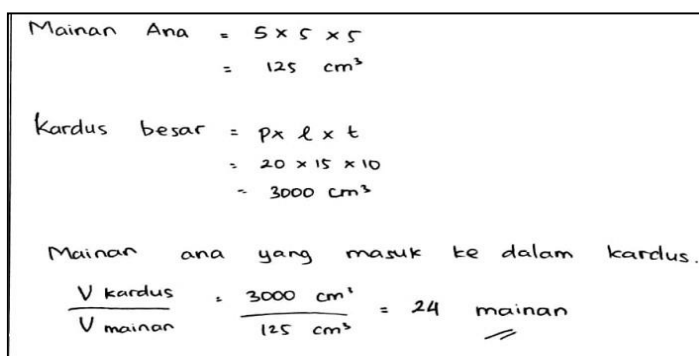 Mainan Ana = 5 x 5 x 5
= 125 cm³
Kardus besar = p x l x t
= 20 x 15 x 10
= 3000 cm³
Mainan ana yang masuk ke dalam kardus.
V kardus / V mainan = 3000 cm³ / 125 cm³ = 24 mainan